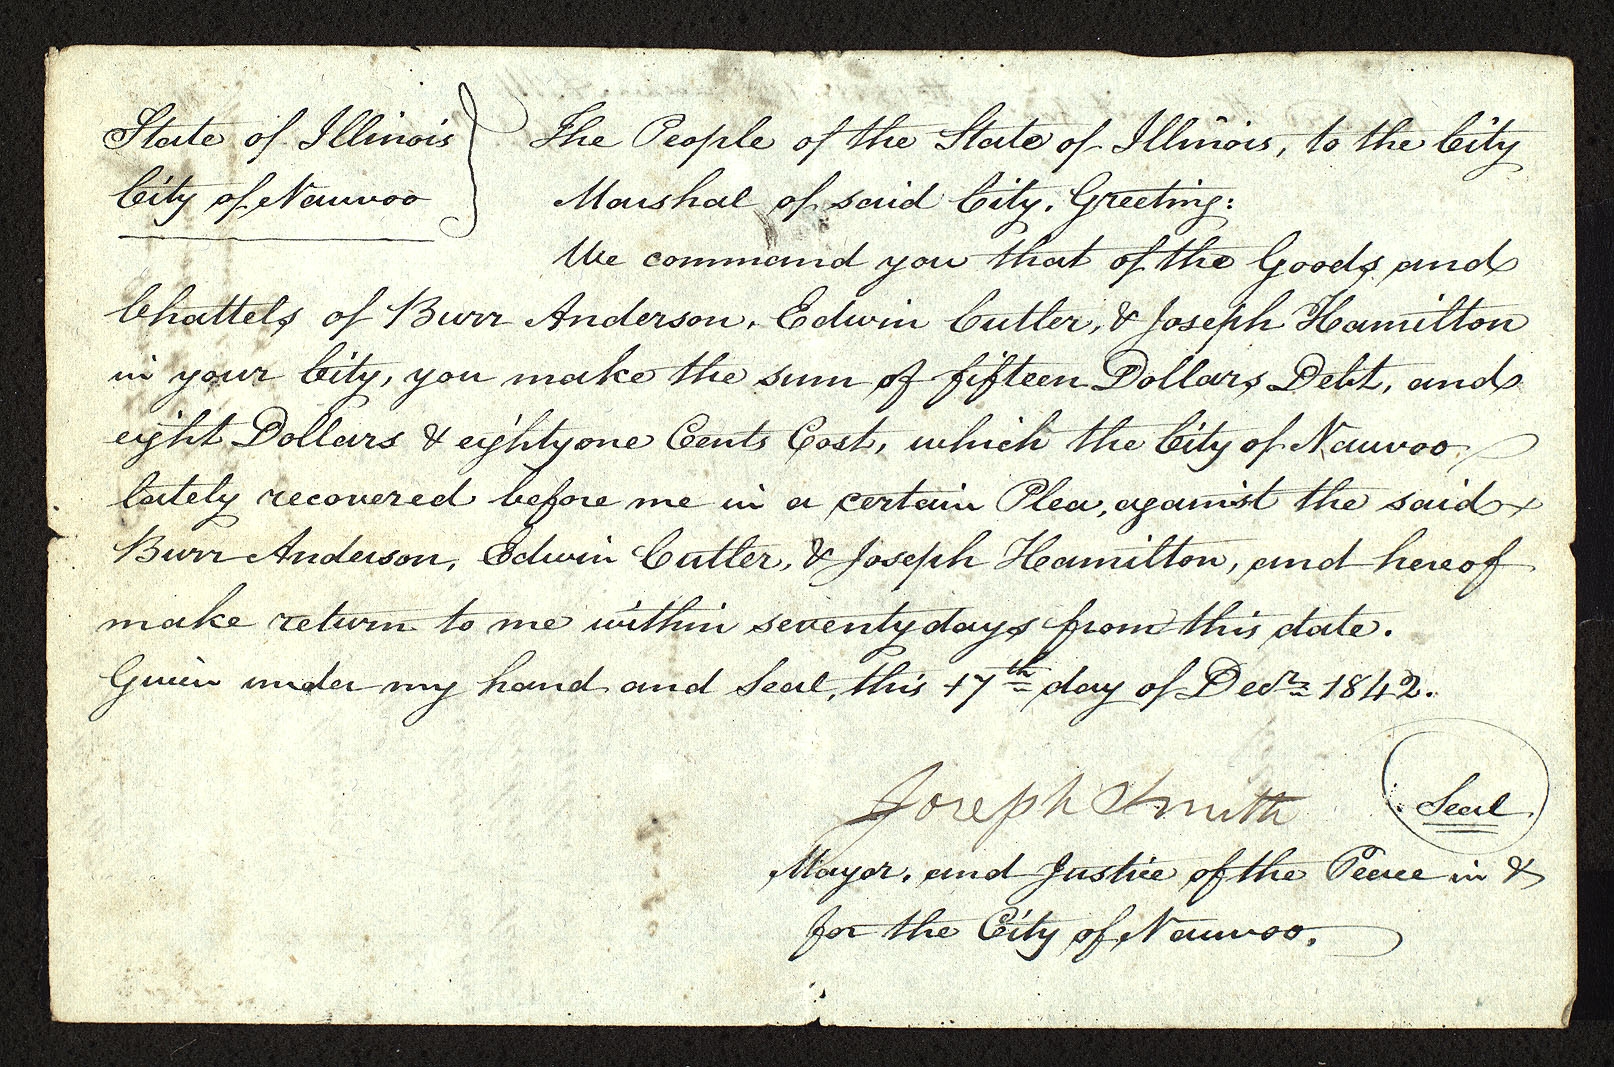 State of Illinois } The People of the State of Illinois, to the City
City of Nauvoo Marshal of said City, Greeting:
We command you that of the Goods and
Chattels of Burr Anderson, Edwin Cutler, & Joseph Hamilton
in your City, you make the sum of fifteen Dollars Debt, and
eight Dollars & eighty one Cents Cost, which the City of Nauvoo
lately recovered before me in a certain Plea, against the said
Burr Anderson, Edwin Cutler, & Joseph Hamilton, and hereof
make return to me within seventy days from this date.
Given under my hand and Seal, this 17th day of Decr 1842.
Joseph Smith Seal
Mayor, and Justice of the Peace in &
for the City of Nauvoo.